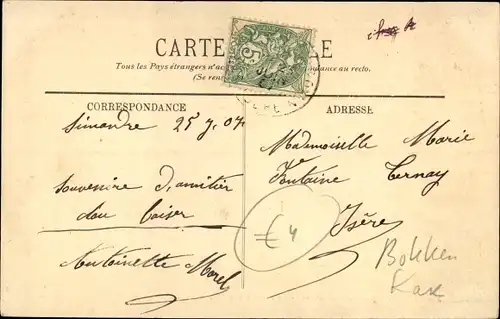 CARTE POSTALE
Tous les Pays étrangers n'ac
ondance au recto.
(Se ren
CORRESPONDANCE
ADRESSE
Simandre 25 7. 07
Souvenire d'amitier
dou baiser
Antoinette Morel
Mademoiselle Marie
Fontaine Ternay
Isère
€ 4
Bokken
Kax
5